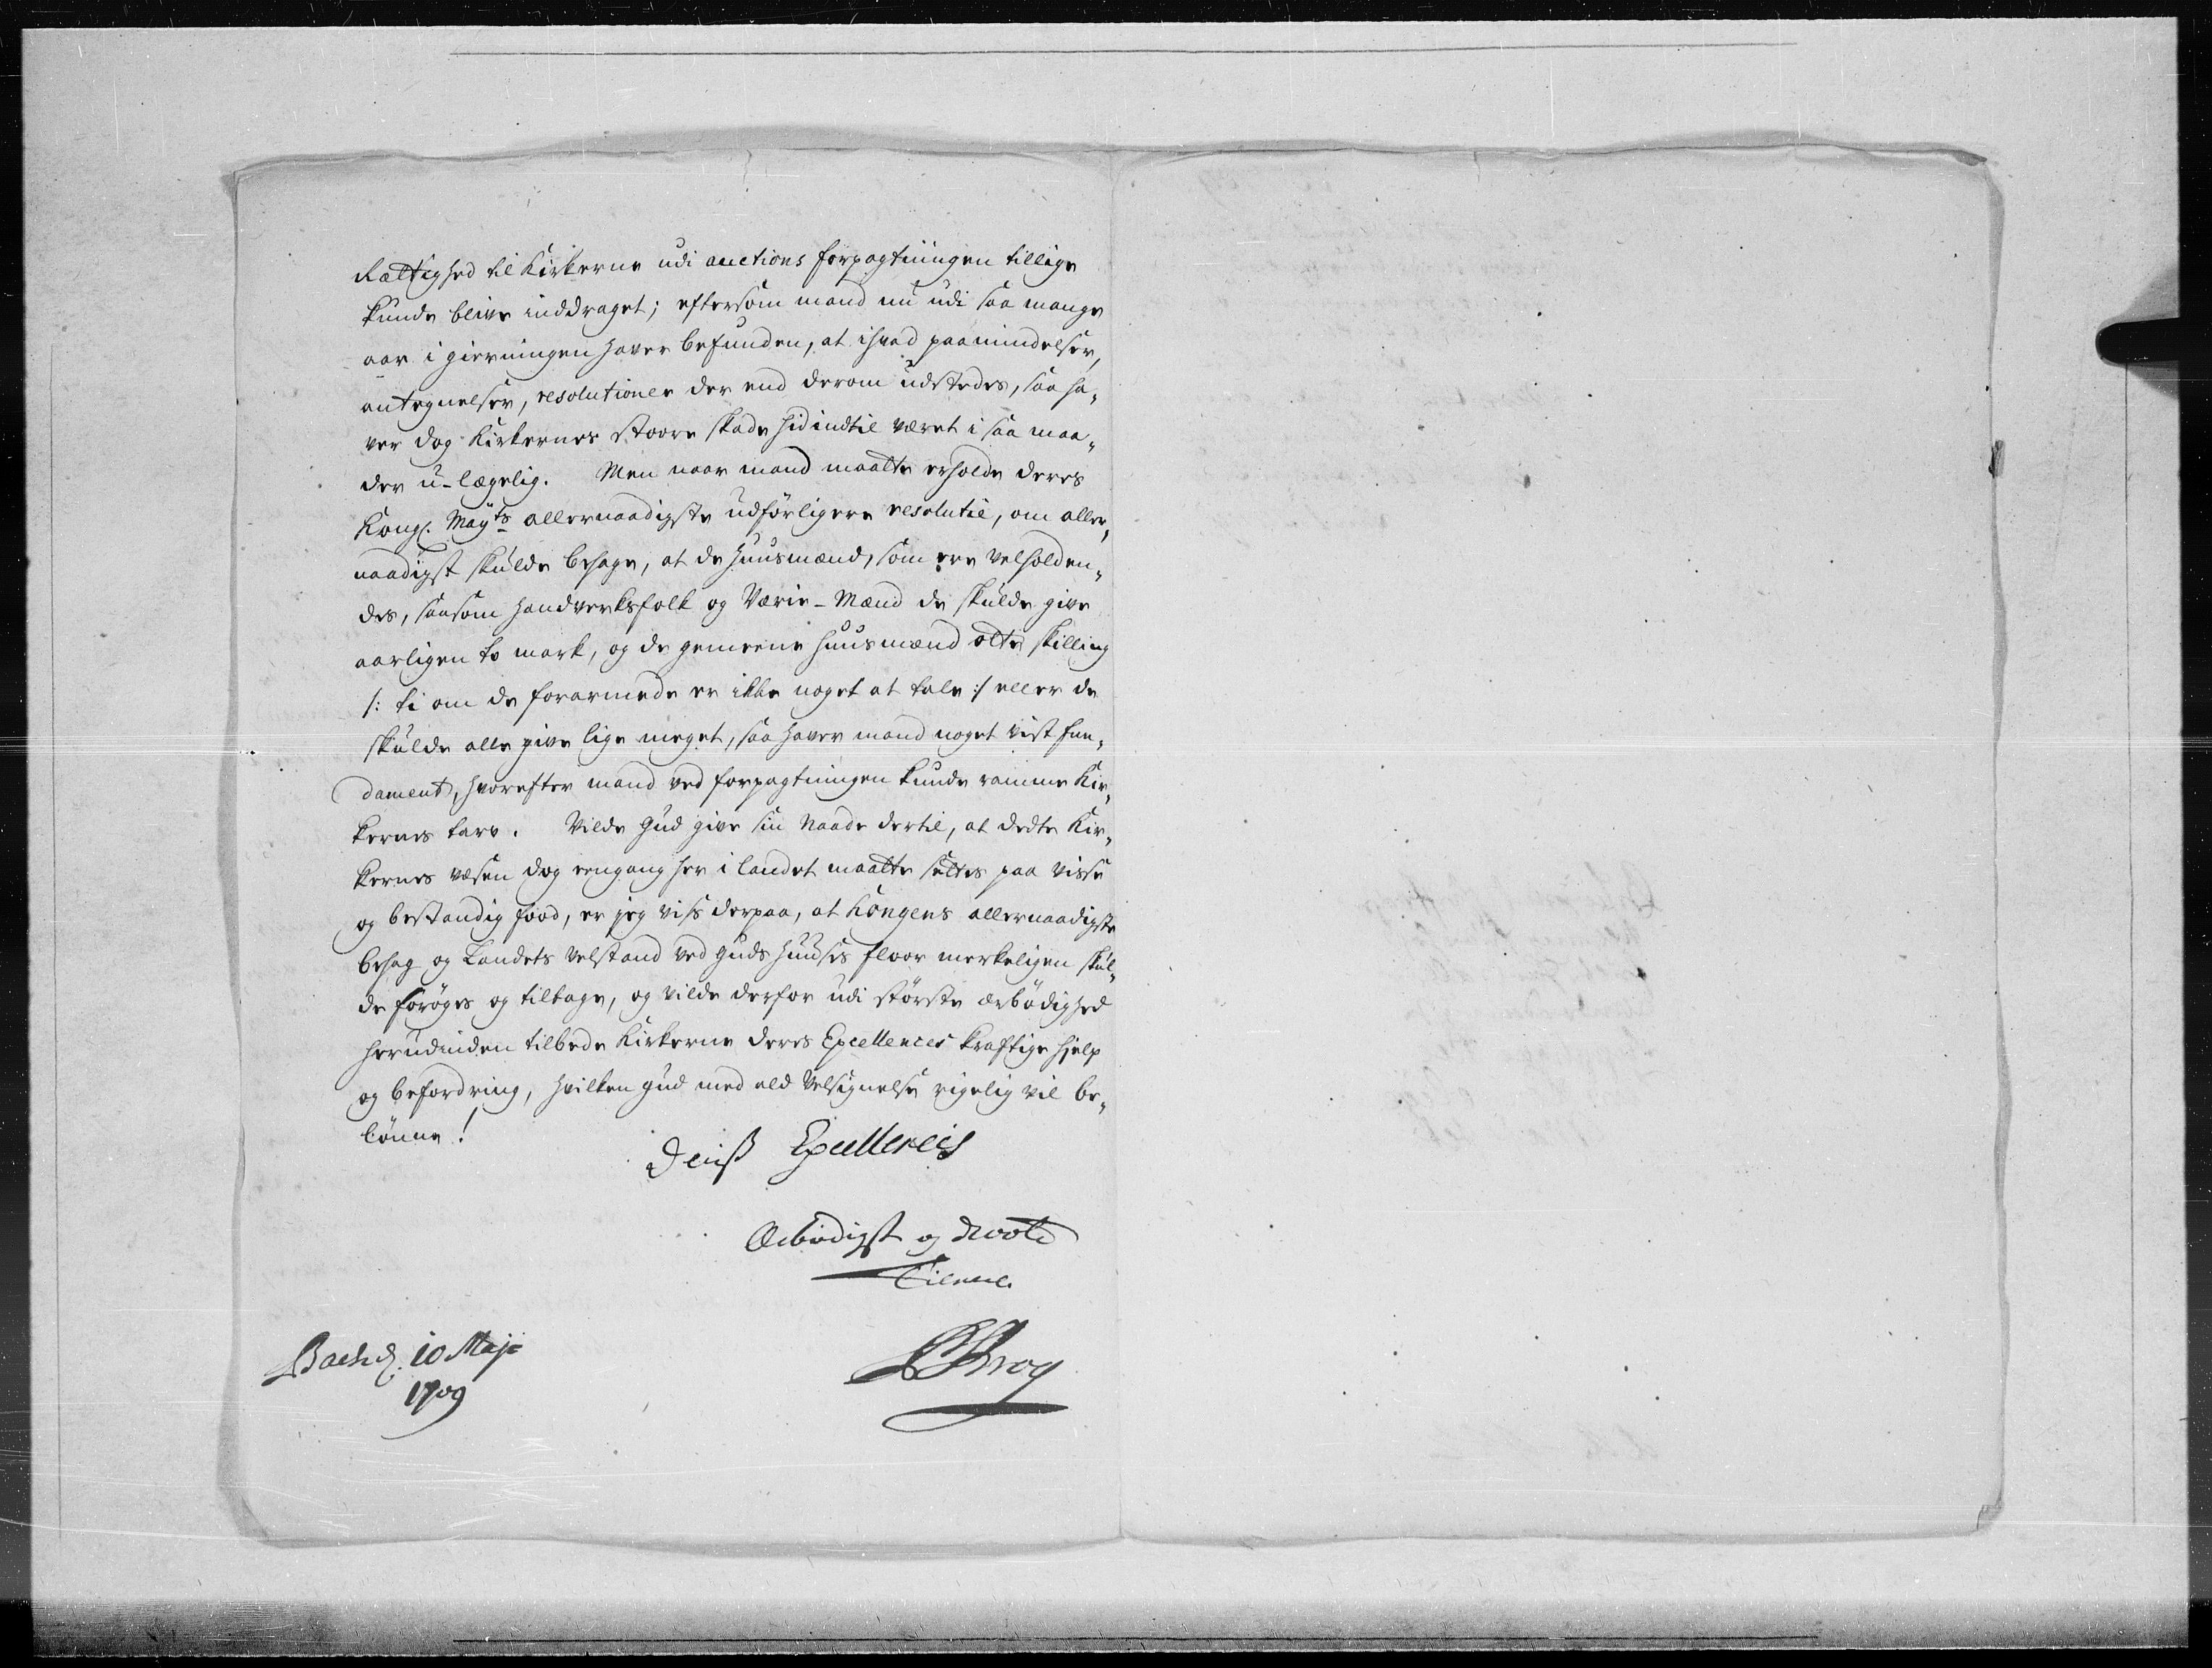 Rættighed til Kirkerne udi auctions forpagtningen tillige
kunde blive inddraget; eftersom mand nu udi saa mange
aar i gierningen haver befunden, at ihvad paamindelser,
antegnelser, resolutioner der end derom udstedes, saa ha„
ver dog Kirkernes stoere skade hid indtil været i saa maa„
der u-lægelig. Men naar mand maatte erholde deres
Kongl. Mayts allernaadigste udförligere resolutie, om aller„
naadigst skulde behage, at de Huusmænd, som ere velholden„
des, saasom Handverksfolk og Værie-Mænd de skulde give
aarligen to mark, og de gemeene huusmænd otte skilling
/: ti om de forarmede er ikke noget at tale :/ eller de
skulde alle give lige meget, saa haver mand noget vist fun„
dament, hvorefter mand ved forpagtningen kunde ramme Kir„
kernes tarv. Vilde Gud give sin Naade dertil, at dette Kir„
kernes væsen dog eengang her i landet maatte settes paa visse
og bestandig food, er jeg viss derpaa, at Kongens allernaadigste
behag og Landets velstand ved Guds Huuses floor merkeligen skul„
de foröges og tiltage, og vilde derfor udi störste ærbödighed
herudinden tilbede Kirkerne deres Excellences kraftige hjelp
og befordring, hvilken Gud med ald Velsignelse rigelig vil be„
lönne!
Deriß Excellences
Ærbödigst og
Tienere
B Krog
10 Maji
1709